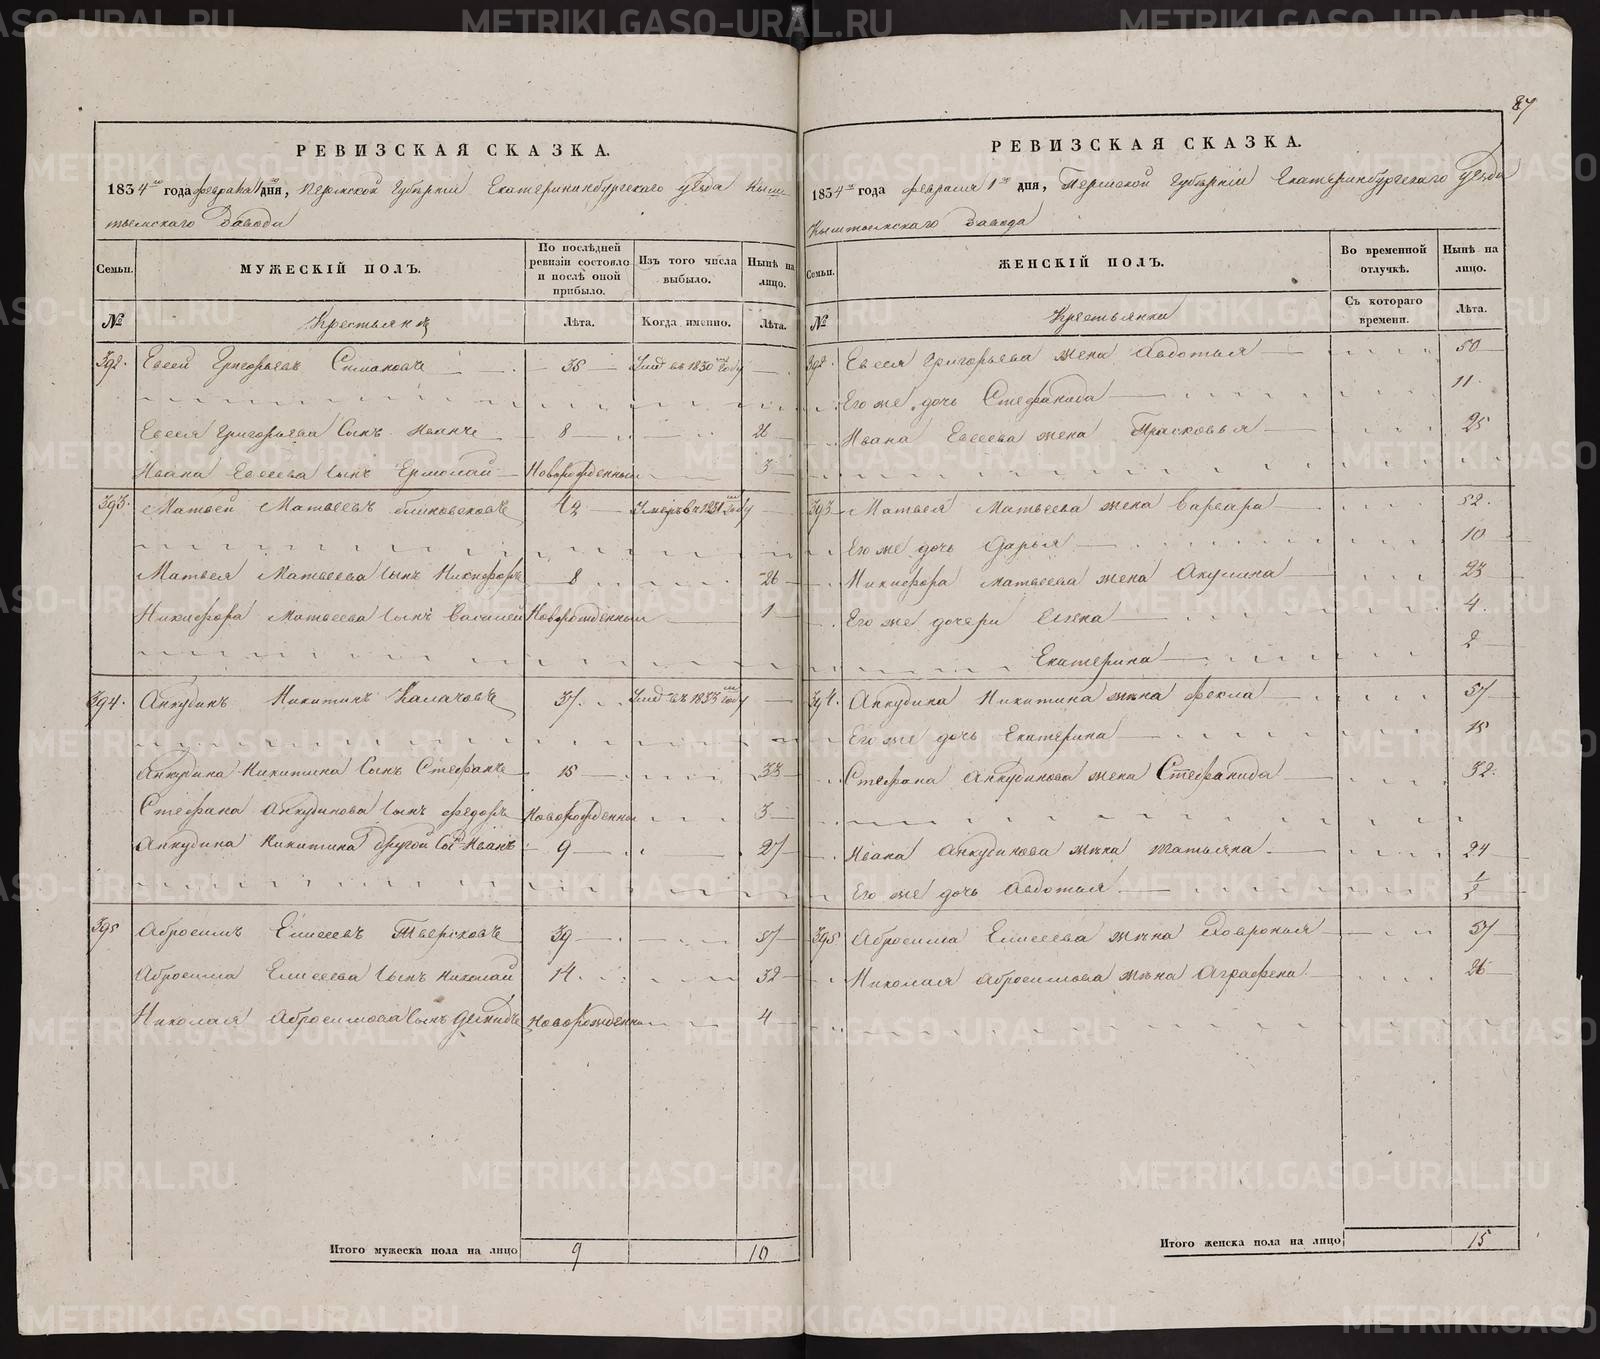 87
РЕВИЗСКАЯ СКАЗКА.
1834го года февраля 1го дня, Пермской Губернiи Екатеринбургского уезда Кыш-
тымскаго Завода
Семьи. МУЖЕСКIЙ ПОЛЪ. По послѣдней ревизiи состояло и послѣ оной прибыло. Изъ того числа выбыло. Нынѣ на лицо.
№ Крестьянѣ Лѣта. Когда именно. Лѣта.
392. Евсей Григорьевъ Симановъ 36 1830 году
Евсея Григорьева Сынъ Иванъ 8 26
Ивана Евсеева Сынъ Ермолай Новорожденный 3
393. Матвей Матвеевъ 42 Умеръ въ 1831м году
Матвея Матвеева Сынъ Никифоръ 8 26
Никифора Матвеева Сынъ Василей Новорожденный 1
394. Анкудинъ Никитинъ Калачовъ 37 1833м году
Анкудина Никитина Сынъ Стефанъ 15 33
Стефана Анкудинова Сынъ Федоръ Новорожденны 3
Анкудина Никитина другой Сы Иванъ 9 27
395 Абросимъ Елисеевъ Тверсковъ 39 57
Абросима Елисеева Сынъ Николай 14 32
Николая Абросимова Сынъ Демидъ Новорожденны 4
Итого мужеска пола на лицо 9 10
РЕВИЗСКАЯ СКАЗКА.
1834го года февраля 1го дня, Пермской Губернiи Екатеринбургскаго Уезда
Кыштымскаго Завода
Семьи. ЖЕНСКIЙ ПОЛЪ. Во временной отлучкѣ. Нынѣ на лицо.
№ Крестьянки Съ котораго времени. Лѣта.
392. Евсея Григорьева жена Авдотья 50
Его же дочь Стефанида 11
Ивана Евсеева жена Прасковья 25
393 Матвея Матвеева жена Варвара 52
Его же дочь Дарья 10
Никифора Матвеева жена Акулина 23
Его же дочери Елена 4
Екатерина 2
394. Анкудина Никитина жена Фекла 57
Его же дочь Екатерина 15
Стефана Анкудинова жена Стефанида 32
Ивана Анкудинова жена Татьяна 24
Его же дочь Авдотья
395 Абросима Елисеева жена Ховронья 57
Николая Абросимова жена Аграфена 26
Итого женска пола на лицо 15
METRIKI.GASO-URAL.RU